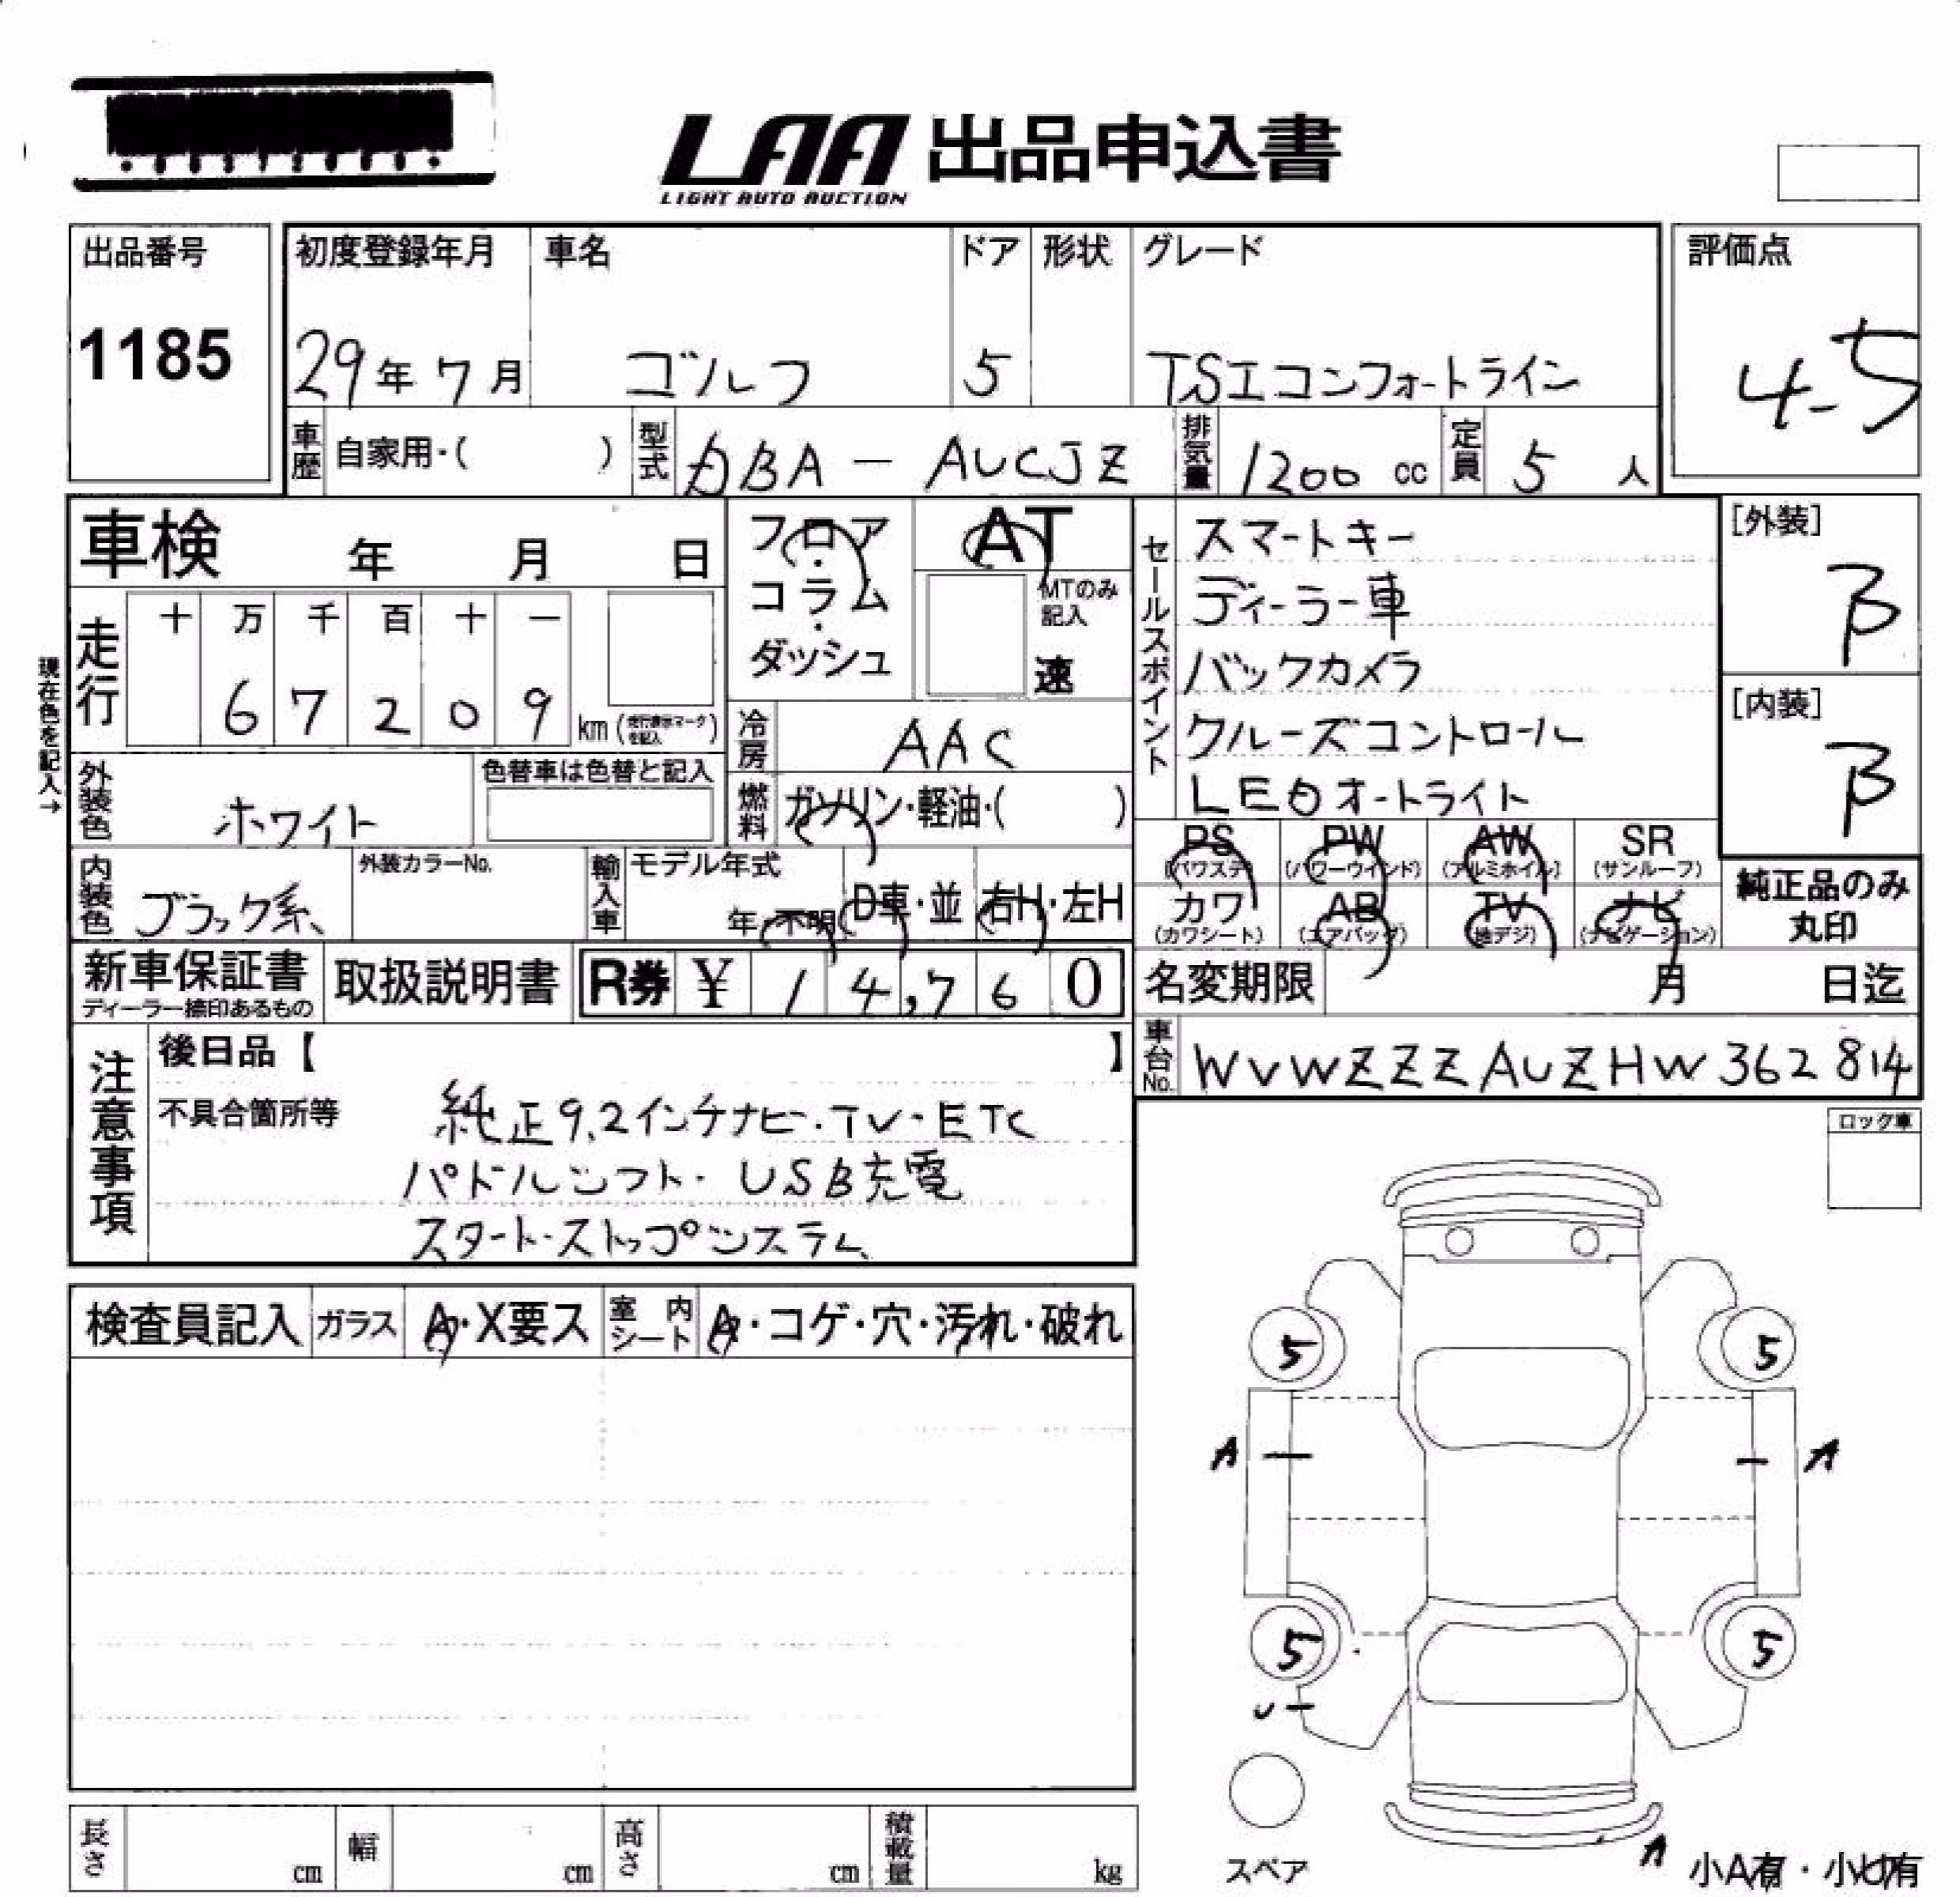 LAA 出品申込書
LIGHT AUTO AUCTION
出品番号
1185
初度登録年月
29年7月
車名
ゴルフ
ドア
5
形状
グレード
TSIコンフォートライン
評価点
4.5
車歴 自家用・( )
型式 DBA - AUCJZ
排気量 1200 cc
定員 5 人
車検 年 月 日
フロア・コラム・ダッシュ
AT
MTのみ記入
速
セールスポイント
スマートキー
ディーラー車
バックカメラ
クルーズコントロール
LEDオートライト
[外装]
B
[内装]
B
現在色を記入→
走行
十 万 千 百 十 一
6 7 2 0 9 km (走行表示マークを記入)
冷房 AAC
外装色 ホワイト
色替車は色替と記入
燃料 ガソリン・軽油・( )
PS (パワステ) PW (パワーウィンド) AW (アルミホイル) SR (サンルーフ)
カワ (カワシート) AB (エアバッグ) TV (地デジ) ナビ (ナビゲーション)
純正品のみ丸印
内装色 ブラック系
外装カラーNo.
輸入車 モデル年式
年・不明 D車・並 右H・左H
新車保証書
ディーラー捺印あるもの
取扱説明書
R券 ¥ 14,760
名変期限 月 日迄
車台No. WVWZZZAUZHW362814
注意事項
後日品【 】
不具合箇所等
純正9.2インチナビ・TV・ETC
パドルシフト・USB充電
スタート・ストップシステム
ロック車
検査員記入 ガラス A・X要ス 室内シート A・コゲ・穴・汚れ・破れ
5 5
A A
5 5
U
スペア
A
小A有・小U有
長さ cm 幅 cm 高さ cm 積載量 kg